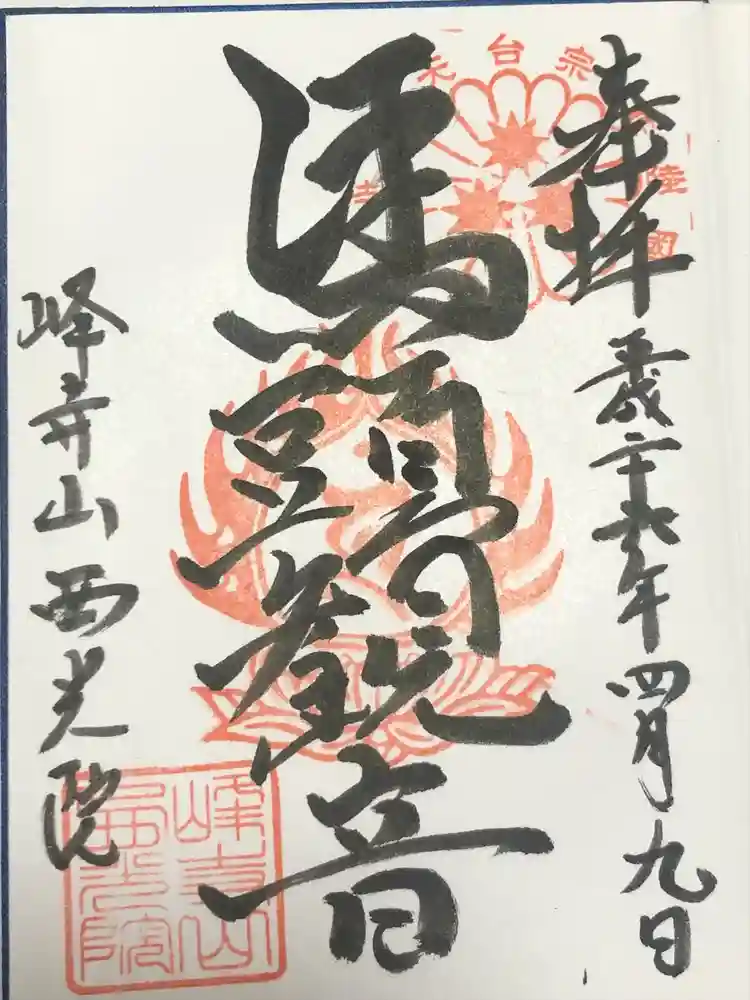 奉拝
平成二十六年四月九日
馬頭観音
峰寺山西光院
天台宗
陸国
峰寺山
西光院